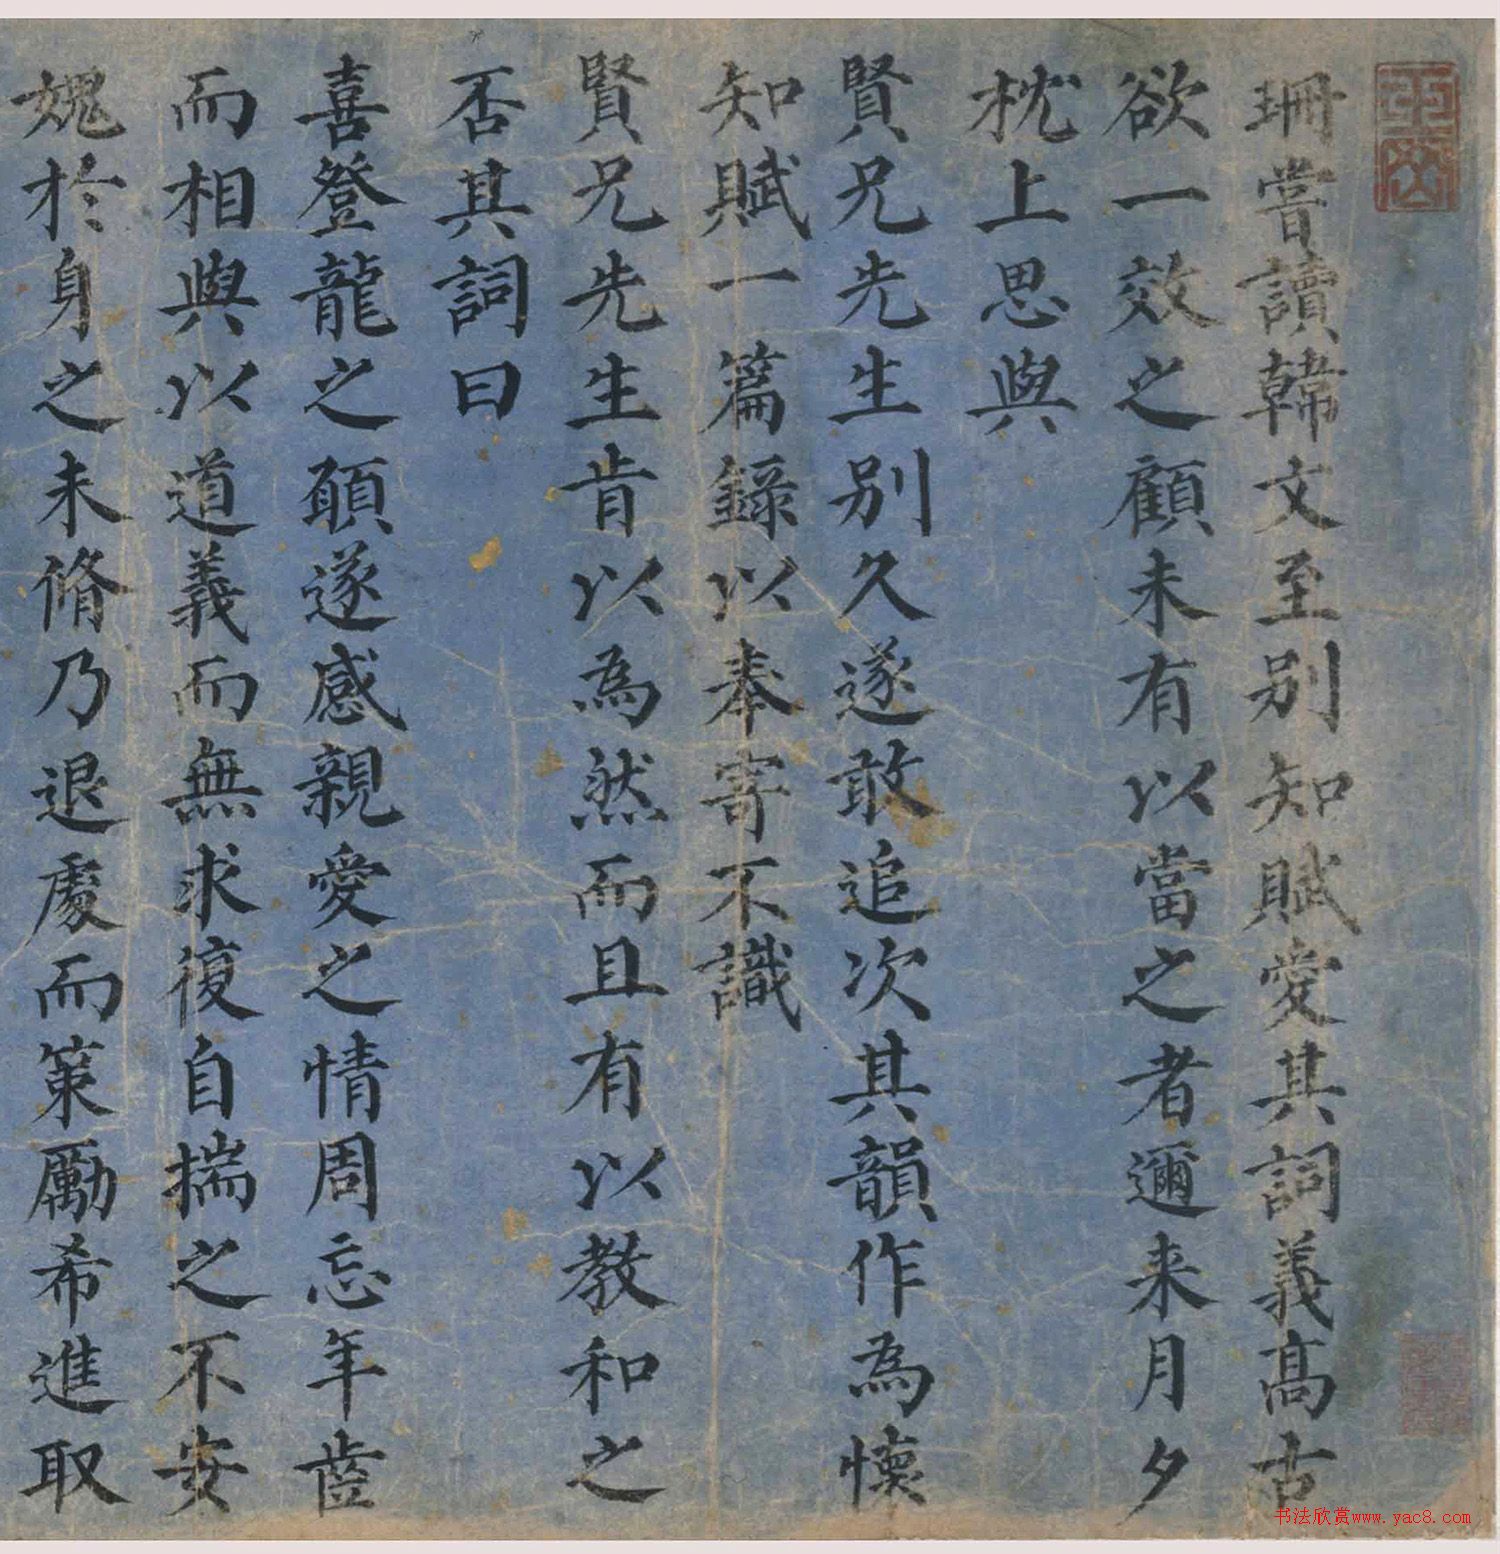 珊嘗讀韓文至别知賦愛其詞義髙古
欲一效之顧未有以當之者邇来月夕
枕上思與
賢兄先生别久遂敢追次其韻作為懷
知賦一篇錄以奉寄不識
賢兄先生肯以為然而且有以教和之
否其詞曰
喜登龍之願遂感親愛之情周忘年齒
而相與以道義而無求復自揣之不安
媿於身之未脩乃退處而策勵希進取
书法欣赏www.yac8.com